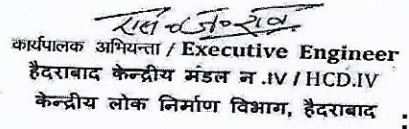 कार्यपालक अभियन्ता / Executive Engineer
हैदराबाद केन्द्रीय मंडल न .IV / HCD.IV
केन्द्रीय लोक निर्माण विभाग, हैदराबाद